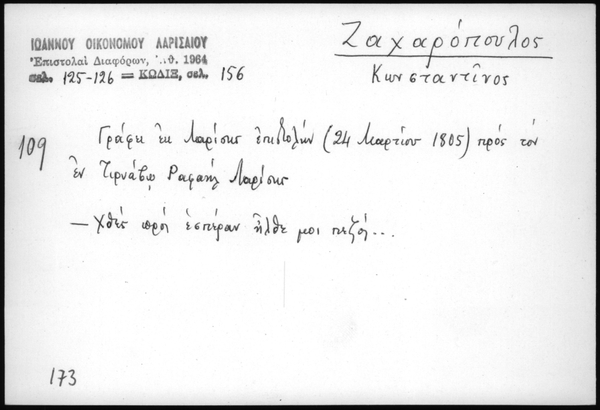 ΙΩΑΝΝΟΥ ΟΙΚΟΝΟΜΟΥ ΛΑΡΙΣΑΙΟΥ
Ἐπιστολαὶ Διαφόρων, Ἀθ. 1964
σελ. 125-126 = ΚΩΔΙΞ, σελ. 156
Ζαχαρόπουλος
Κωνσταντῖνος
109
Γράφει ἐκ Λαρίσης ἐπιστολήν (24 Μαρτίου 1805) πρός τόν
ἐν Τιρνάβῳ Ραφαήλ Λαρίσης
— Χθές πρός ἑσπέραν ἦλθε μοι πεζός...
173